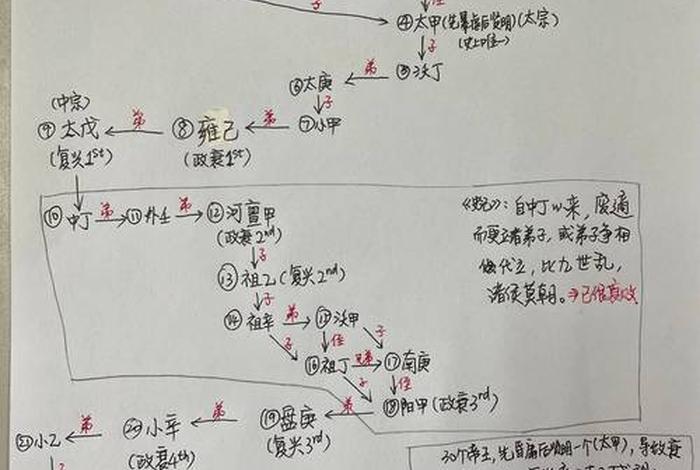 子
侄
④太甲(先暴虐后贤明)(太宗)
(史上唯一)
子
⑤沃丁
弟
⑥太庚
子
⑦小甲
弟
⑧雍己
(政衰1st)
弟
(中宗)
⑨太戊
(复兴1st)
⑩中丁
弟
⑪外壬
弟
⑫河亶甲
(政衰2nd)
子
⑬祖乙(复兴2nd)
子
⑭祖辛
弟
⑮沃甲
子
侄
子
⑯祖丁
兄弟
⑰南庚
子
侄
⑱阳甲(政衰3rd)
弟
⑲盘庚
(复兴3rd)
弟
⑳小辛
(政衰4th)
弟
㉑小乙
子
自中丁以来,废適
而更立诸弟子,或弟子争相
代立,比九世乱,
诸侯莫朝。
30个帝王,先昏庸后贤明一个(太甲),导致衰